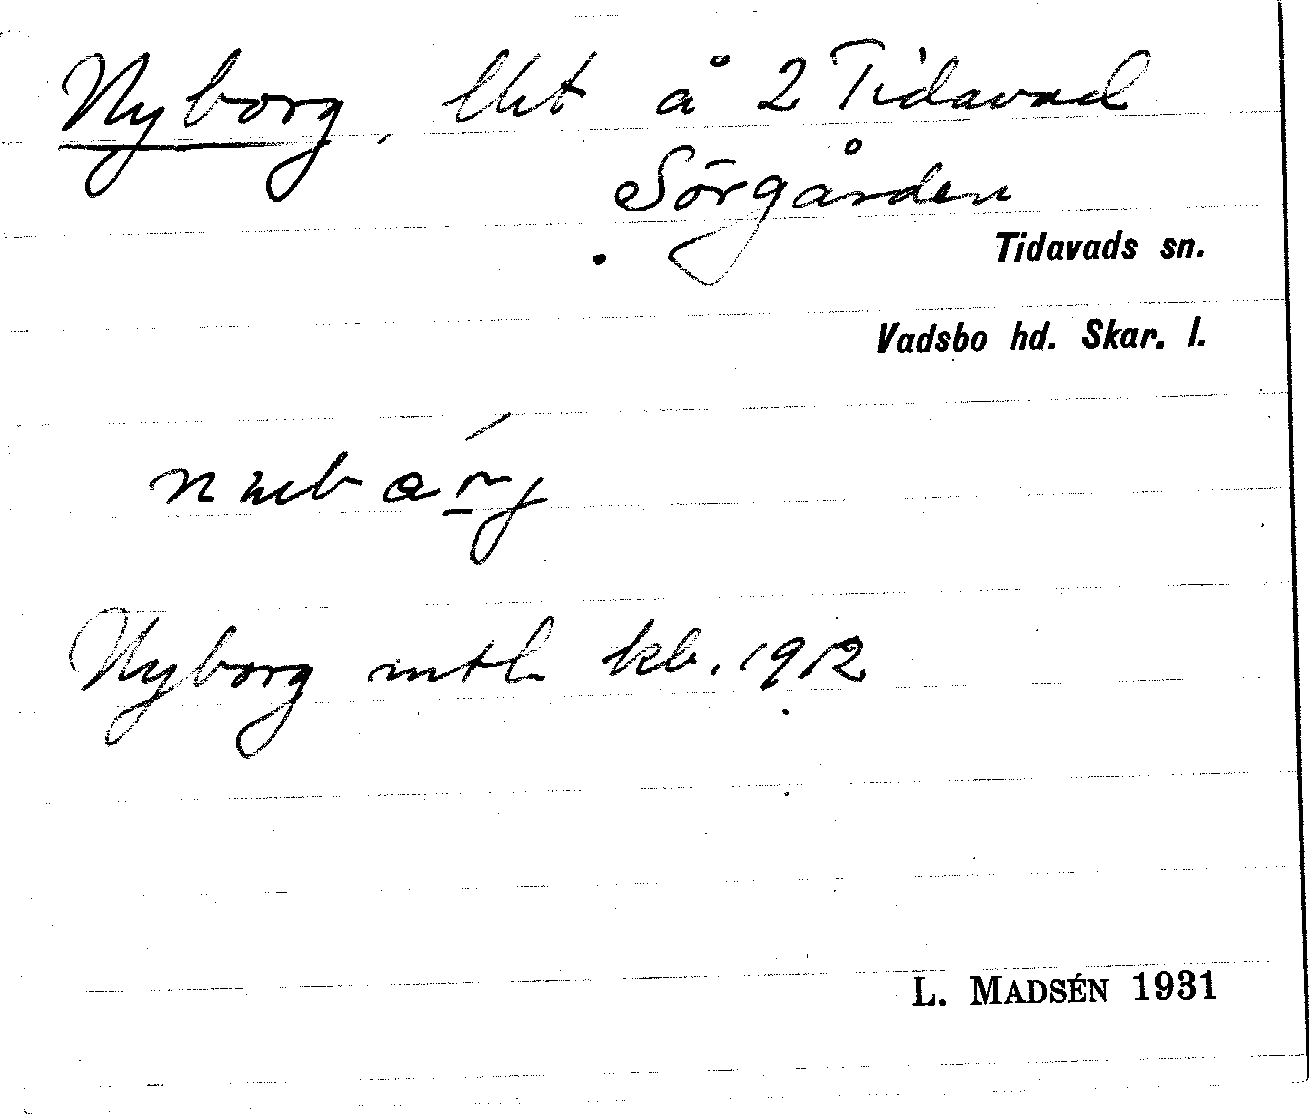 Nyborg, lht å 2 Tidavad
Sörgården
Tidavads sn.
Vadsbo hd. Skar. l.
Nyborg mtl kb. 1912
L. MADSÉN 1931